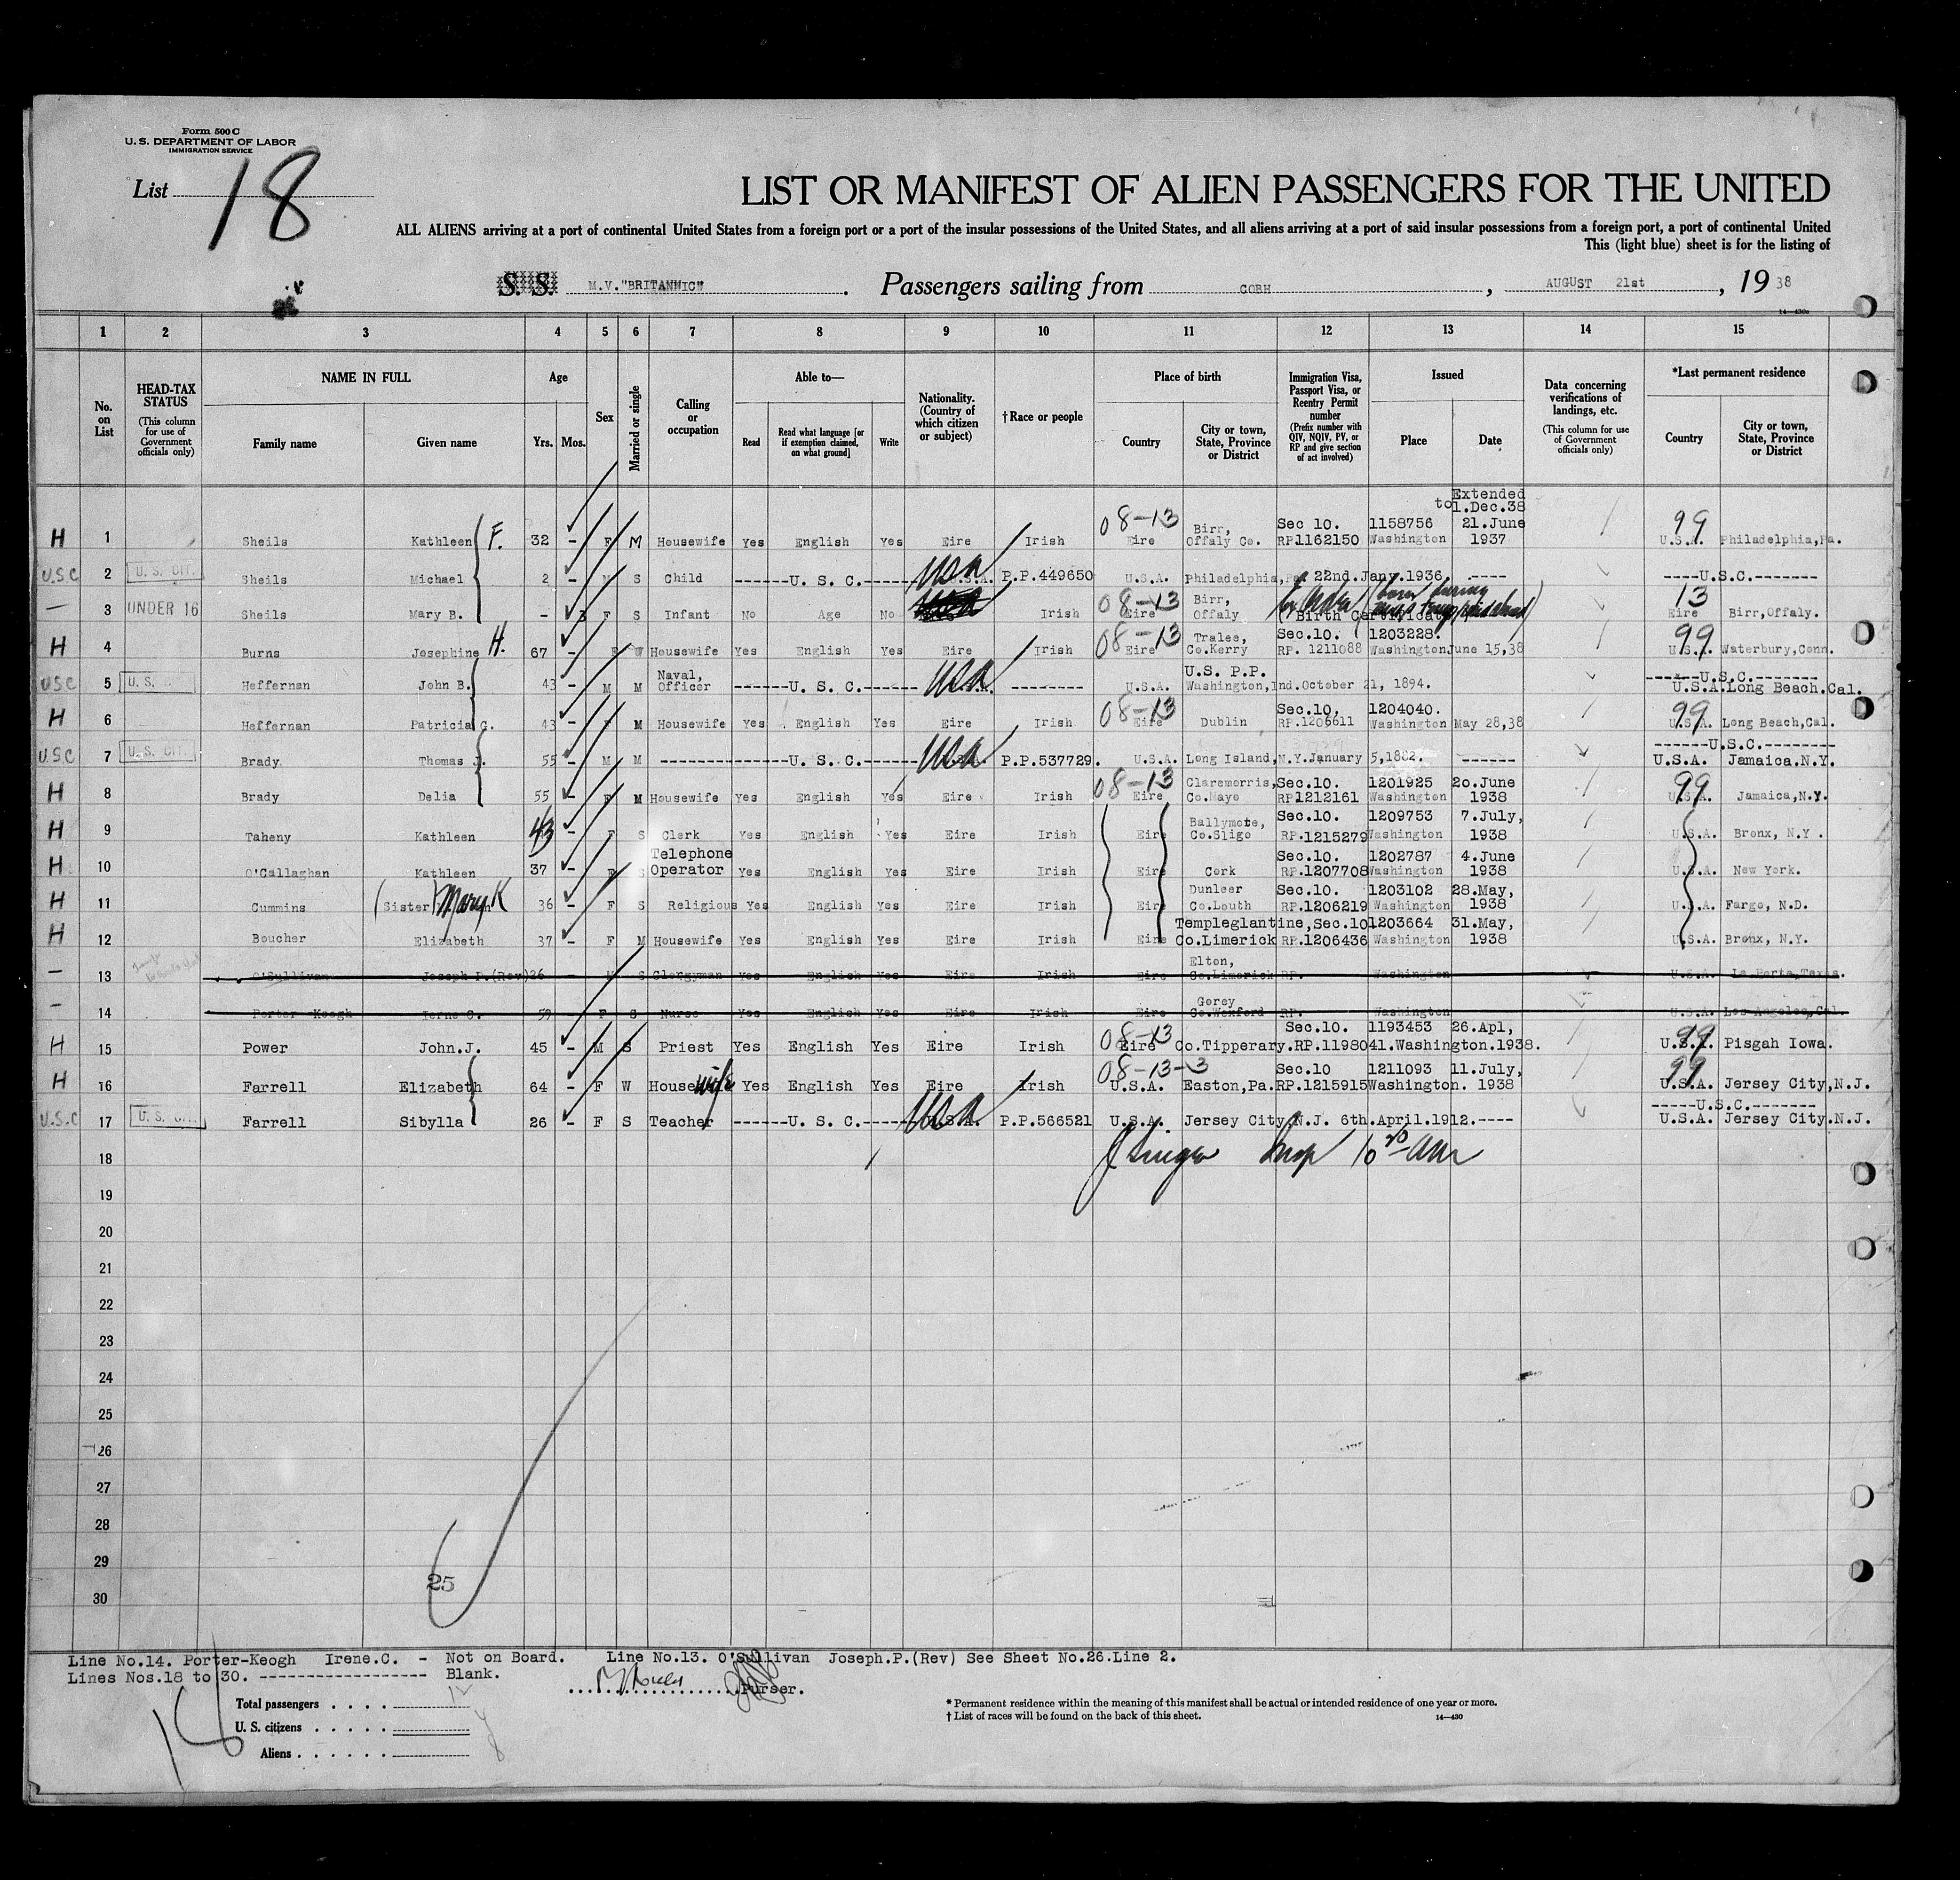 Form 500 C
U. S. DEPARTMENT OF LABOR
IMMIGRATION SERVICE
List 18
LIST OR MANIFEST OF ALIEN PASSENGERS FOR THE UNITED
ALL ALIENS arriving at a port of continental United States from a foreign port or a port of the insular possessions of the United States, and all aliens arriving at a port of said insular possessions from a foreign port, a port of continental United
This (light blue) sheet is for the listing of
S. S. M.V."BRITANNIC" . Passengers sailing from COBH , AUGUST 21st , 19 38
14—430a
1 2 3 4 5 6 7 8 9 10 11 12 13 14 15
No. on List
HEAD-TAX STATUS (This column for use of Government officials only)
NAME IN FULL
Family name Given name
Age
Yrs. Mos.
Sex
Married or single
Calling or occupation
Able to—
Read Read what language [or if exemption claimed, on what ground] Write
Nationality. (Country of which citizen or subject)
†Race or people
Place of birth
Country City or town, State, Province or District
Immigration Visa, Passport Visa, or Reentry Permit number (Prefix number with QIV, NQIV, PV, or RP and give section of act involved)
Issued
Place Date
Data concerning verifications of landings, etc. (This column for use of Government officials only)
*Last permanent residence
Country City or town, State, Province or District
Extended
to 1.Dec.38
08-13 Birr, Sec 10. 1158756 21.June 99
H 1 Sheils Kathleen F. 32 - F M Housewife Yes English Yes Eire Irish Eire Offaly Co. RP1162150 Washington 1937 U.S.A. Philadelphia,Pa.
USC 2 U. S. CIT. Sheils Michael 2 - M S Child ------U. S. C.------ USA U.S.A. P.P.449650 U.S.A. Philadelphia,Pa. 22nd.Jany.1936. ---- ----U.S.C.-------
08-13 Birr, born during 13
— 3 UNDER 16 Sheils Mary B. - 3 F S Infant No Age No Irish Eire Offaly (Birth Certificate) Eire Birr,Offaly.
08-13 Tralee, Sec.10. 1203228. 99
H 4 Burns Josephine H. 67 - F W Housewife Yes English Yes Eire Irish Eire Co.Kerry RP. 1211088 Washington June 15,38 U.S.A. Waterbury,Conn.
Naval, U.S. P.P. ------U.S.C.--------
USC 5 U. S. Heffernan John B. 43 - M M Officer ------U. S. C.------ USA --------- U.S.A. Washington,Ind.October 21, 1894. U.S.A.Long Beach.Cal.
08-13 Sec.10, 1204040. 99
H 6 Heffernan Patricia G. 43 - F M Housewife Yes English Yes Eire Irish Eire Dublin RP.1206611 Washington May 28,38 U.S.A. Long Beach,Cal.
------U.S.C.---------
USC 7 U. S. CIT. Brady Thomas J. 55 - M M ---------------U. S. C.------ USA P.P.537729. U.S.A. Long Island,N.Y.January 5,1882. ------ U.S.A. Jamaica.N.Y.
08-13 Claremorris,Sec.10. 1201925 20.June 99
H 8 Brady Delia 55 - F M Housewife Yes English Yes Eire Irish Eire Co.Mayo RP.1212161 Washington 1938 U.S.A. Jamaica,N.Y.
Ballymote, Sec.10. 1209753 7.July,
H 9 Taheny Kathleen 43 - F S Clerk Yes English Yes Eire Irish Eire Co.Sligo RP.1215279 Washington 1938 U.S.A. Bronx, N.Y.
Telephone Sec.10. 1202787 4.June
H 10 O'Callaghan Kathleen 37 - F S Operator Yes English Yes Eire Irish Eire Cork RP.1207708 Washington 1938 U.S.A. New York.
Dunleer Sec.10. 1203102 28.May,
H 11 Cummins (Sister) Mary K 36 - F S Religious Yes English Yes Eire Irish Eire Co.Louth RP.1206219 Washington 1938 U.S.A. Fargo, N.D.
Templeglantine, Sec.10 1203664 31.May,
H 12 Boucher Elizabeth 37 - F M Housewife Yes English Yes Eire Irish Eire Co.Limerick RP.1206436 Washington 1938 U.S.A. Bronx, N.Y.
Elton,
— 13 O'Sullivan Joseph P.(Rev) 26 - M S Clergyman Yes English Yes Eire Irish Eire Co.Limerick RP. Washington U.S.A. La Porte,Texas.
Gorey
— 14 Porter-Keogh Irene C. 59 F S Nurse Yes English Yes Eire Irish Eire Co.Wexford RP. Washington U.S.A. Los Angeles,Cal.
08-13 Sec.10. 1193453 26.Apl, 99
H 15 Power John.J. 45 - M S Priest Yes English Yes Eire Irish Eire Co.Tipperary.RP.1198041.Washington.1938. U.S.A. Pisgah Iowa.
08-13-3 Sec.10 1211093 11.July, 99
H 16 Farrell Elizabeth 64 - F W Housewife Yes English Yes Eire Irish U.S.A. Easton,Pa.RP.1215915Washington. 1938 U.S.A. Jersey City,N.J.
-----U.S.C.--------
U.S.C 17 U. S. CIT. Farrell Sibylla 26 - F S Teacher ------U. S. C.---- USA U.S.A. P.P.566521 U.S.A. Jersey City.N.J. 6th.April.1912.---- U.S.A. Jersey City.N.J.
18
19
20
21
22
23
24
25
26
27
28
29
25
30
Line No.14. Porter-Keogh Irene.C. - Not on Board. Line No.13. O'Sullivan Joseph.P.(Rev) See Sheet No.26.Line 2.
Lines Nos.18 to 30. ------------------ Blank.
Purser.
Total passengers
U. S. citizens
Aliens
* Permanent residence within the meaning of this manifest shall be actual or intended residence of one year or more.
† List of races will be found on the back of this sheet.
14—430